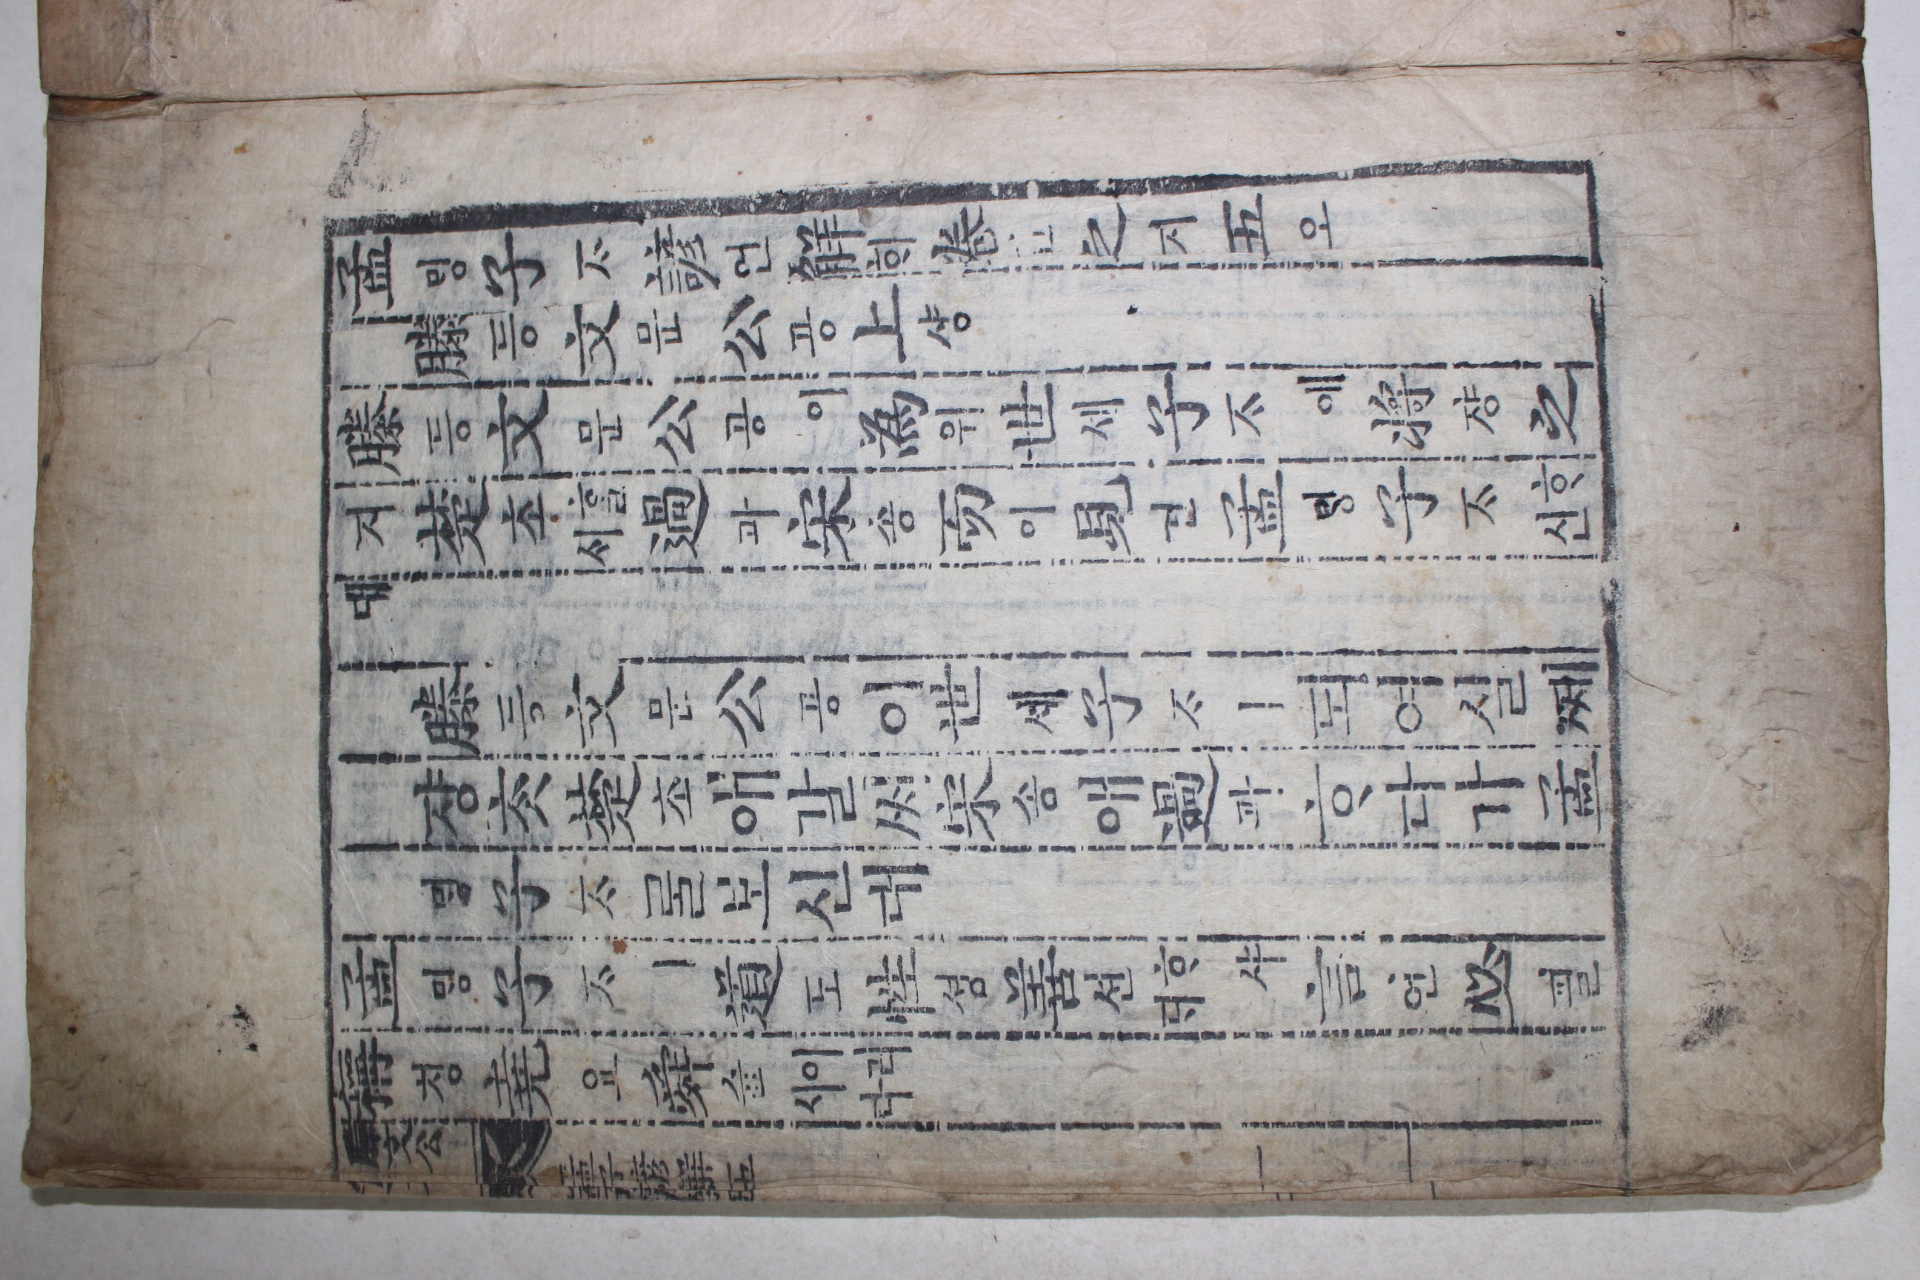 孟ᄆᆡᆼ子ᄌᆞ諺언解ᄒᆡ卷권之지五오
滕등文문公공上샹
滕등文문公공이爲위世셰子ᄌᆞ애將쟝之
지楚초ᄒᆞᆯᄉᆡ過과宋송而이見견孟ᄆᆡᆼ子ᄌᆞᄒᆞ신
대
滕등文문公공이世셰子ᄌᆞㅣ되여실제
쟝ᄎᆞᆺ楚초애갈ᄉᆡ宋송애過과ᄒᆞ다가孟
ᄆᆡᆼ子ᄌᆞᄅᆞᆯ보신대
孟ᄆᆡᆼ子ᄌᆞㅣ道도性셩善션ᄒᆞ샤ᄃᆡ言언必필
稱칭堯요舜슌이러시다
文公 孟子諺解五